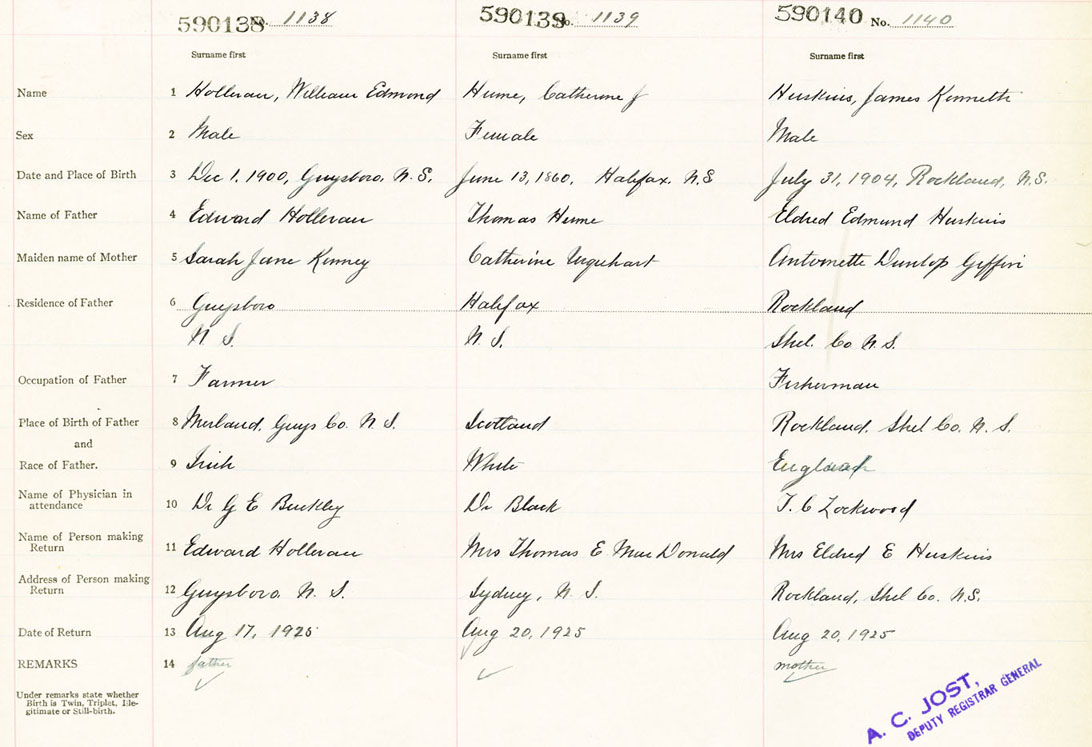 590138 No. 1138 590139 No. 1139 590140 No. 1140
Surname first Surname first Surname first
Name 1 Holleran, William Edmond Hume, Catherine J Huskins, James Kenneth
Sex 2 Male Female Male
Date and Place of Birth 3 Dec 1, 1900, Guysboro, N.S. June 13, 1860, Halifax, N.S July 31, 1904, Rockland, N.S.
Name of Father 4 Edward Holleran Thomas Hume Eldred Edmund Huskins
Maiden name of Mother 5 Sarah Jane Kenney Catherine Urquhart Antoinette Dunlop Giffin
Residence of Father 6 Guysboro Halifax Rockland
N S. N. S. Shel. Co N.S.
Occupation of Father 7 Farmer Fisherman
Place of Birth of Father 8 Guys Co. N. S. Scotland Rockland, Shel Co. N. S.
and
Race of Father. 9 Irish White
Name of Physician in
attendance 10 Dr G E Buckley Dr Black T. C Lockwood
Name of Person making
Return 11 Edward Holleran Mrs Thomas E MacDonald Mrs Eldred E Huskins
Address of Person making
Return 12 Guysboro, N. S. Sydney, N. S. Rockland, Shel Co. N.S.
Date of Return 13 Aug 17, 1925 Aug 20, 1925 Aug 20, 1925
REMARKS 14 father mother
Under remarks state whether
Birth is Twin, Triplet, Ille-
gitimate or Still-birth.
A. C. JOST,
DEPUTY REGISTRAR GENERAL